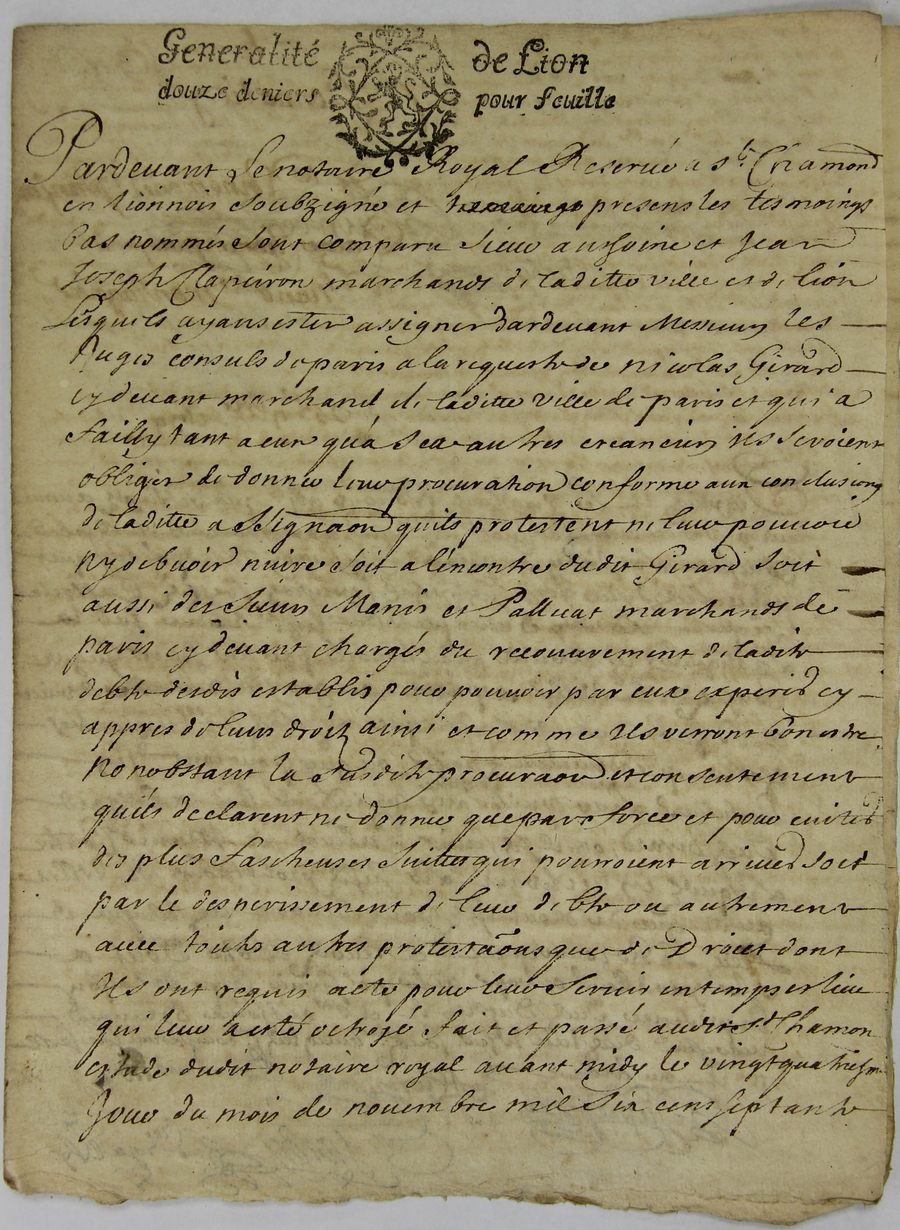 Generalité de Lion
douze deniers pour feuille
Pardevant Le notaire Royal Reservé a St. Chamond
en lionnois soubzigné et presens les tesmoings
bas nommés sont comparu sieur anthoine et Jean
Joseph Clapeiron marchands de laditte ville et de lion
Lesquels ayans ester assigner Pardevant Messieurs les
Juges consuls de paris a la requeste de nicolas Girard
cy devant marchand de laditte ville de paris et qui a
failly tant a eux qu'a sea autres creanciers ils seroient
obliger de donner leur procuration conforme aux conclusions
de laditte assignaon quils protestent ne leur pouvoir
ny debvoir nuire soit a lencontre dudit Girard soit
aussi des sieurs Manis et Palluat marchands de
paris cy devant chargés du recouvrement de ladite
debte desdis establis pour pouvoir par eux experid cy
appres de leurs droitz ainsi et comme ils verront bon estre
Nonobstant la susdite procuraon et consentement
quils declarent ne donner que par force et pour eviter
des plus fascheuses suittes qui pourroient arriver soit
par le desperissement de leur debte ou autrement
avec toutes autres protestaons que de Droict dont
Ils ont requis acte pour leur servir en temps et lieu
qui leur a esté octroyé fait et passé audit St Chamon
estude dudit notaire royal avant midy le vingt quatriesme
Jour du mois de novembre mil six cens septante